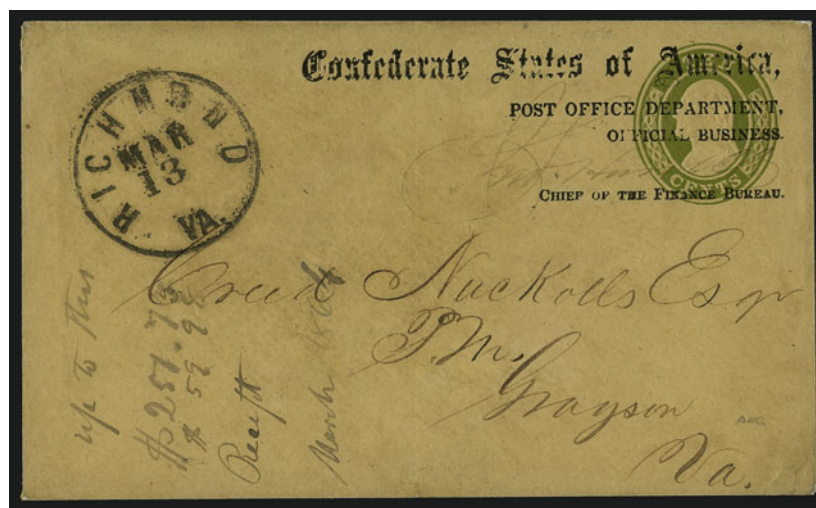 Confederate States of America,
POST OFFICE DEPARTMENT,
OFFICIAL BUSINESS.
CHIEF OF THE FINANCE BUREAU.
CENTS
RICHMOND
MAR
13
VA.
Creed Nuckolls Esqr
P.M.
Grayson
Va.
up to this
$251.73
$59.92
Receipt
March 1864